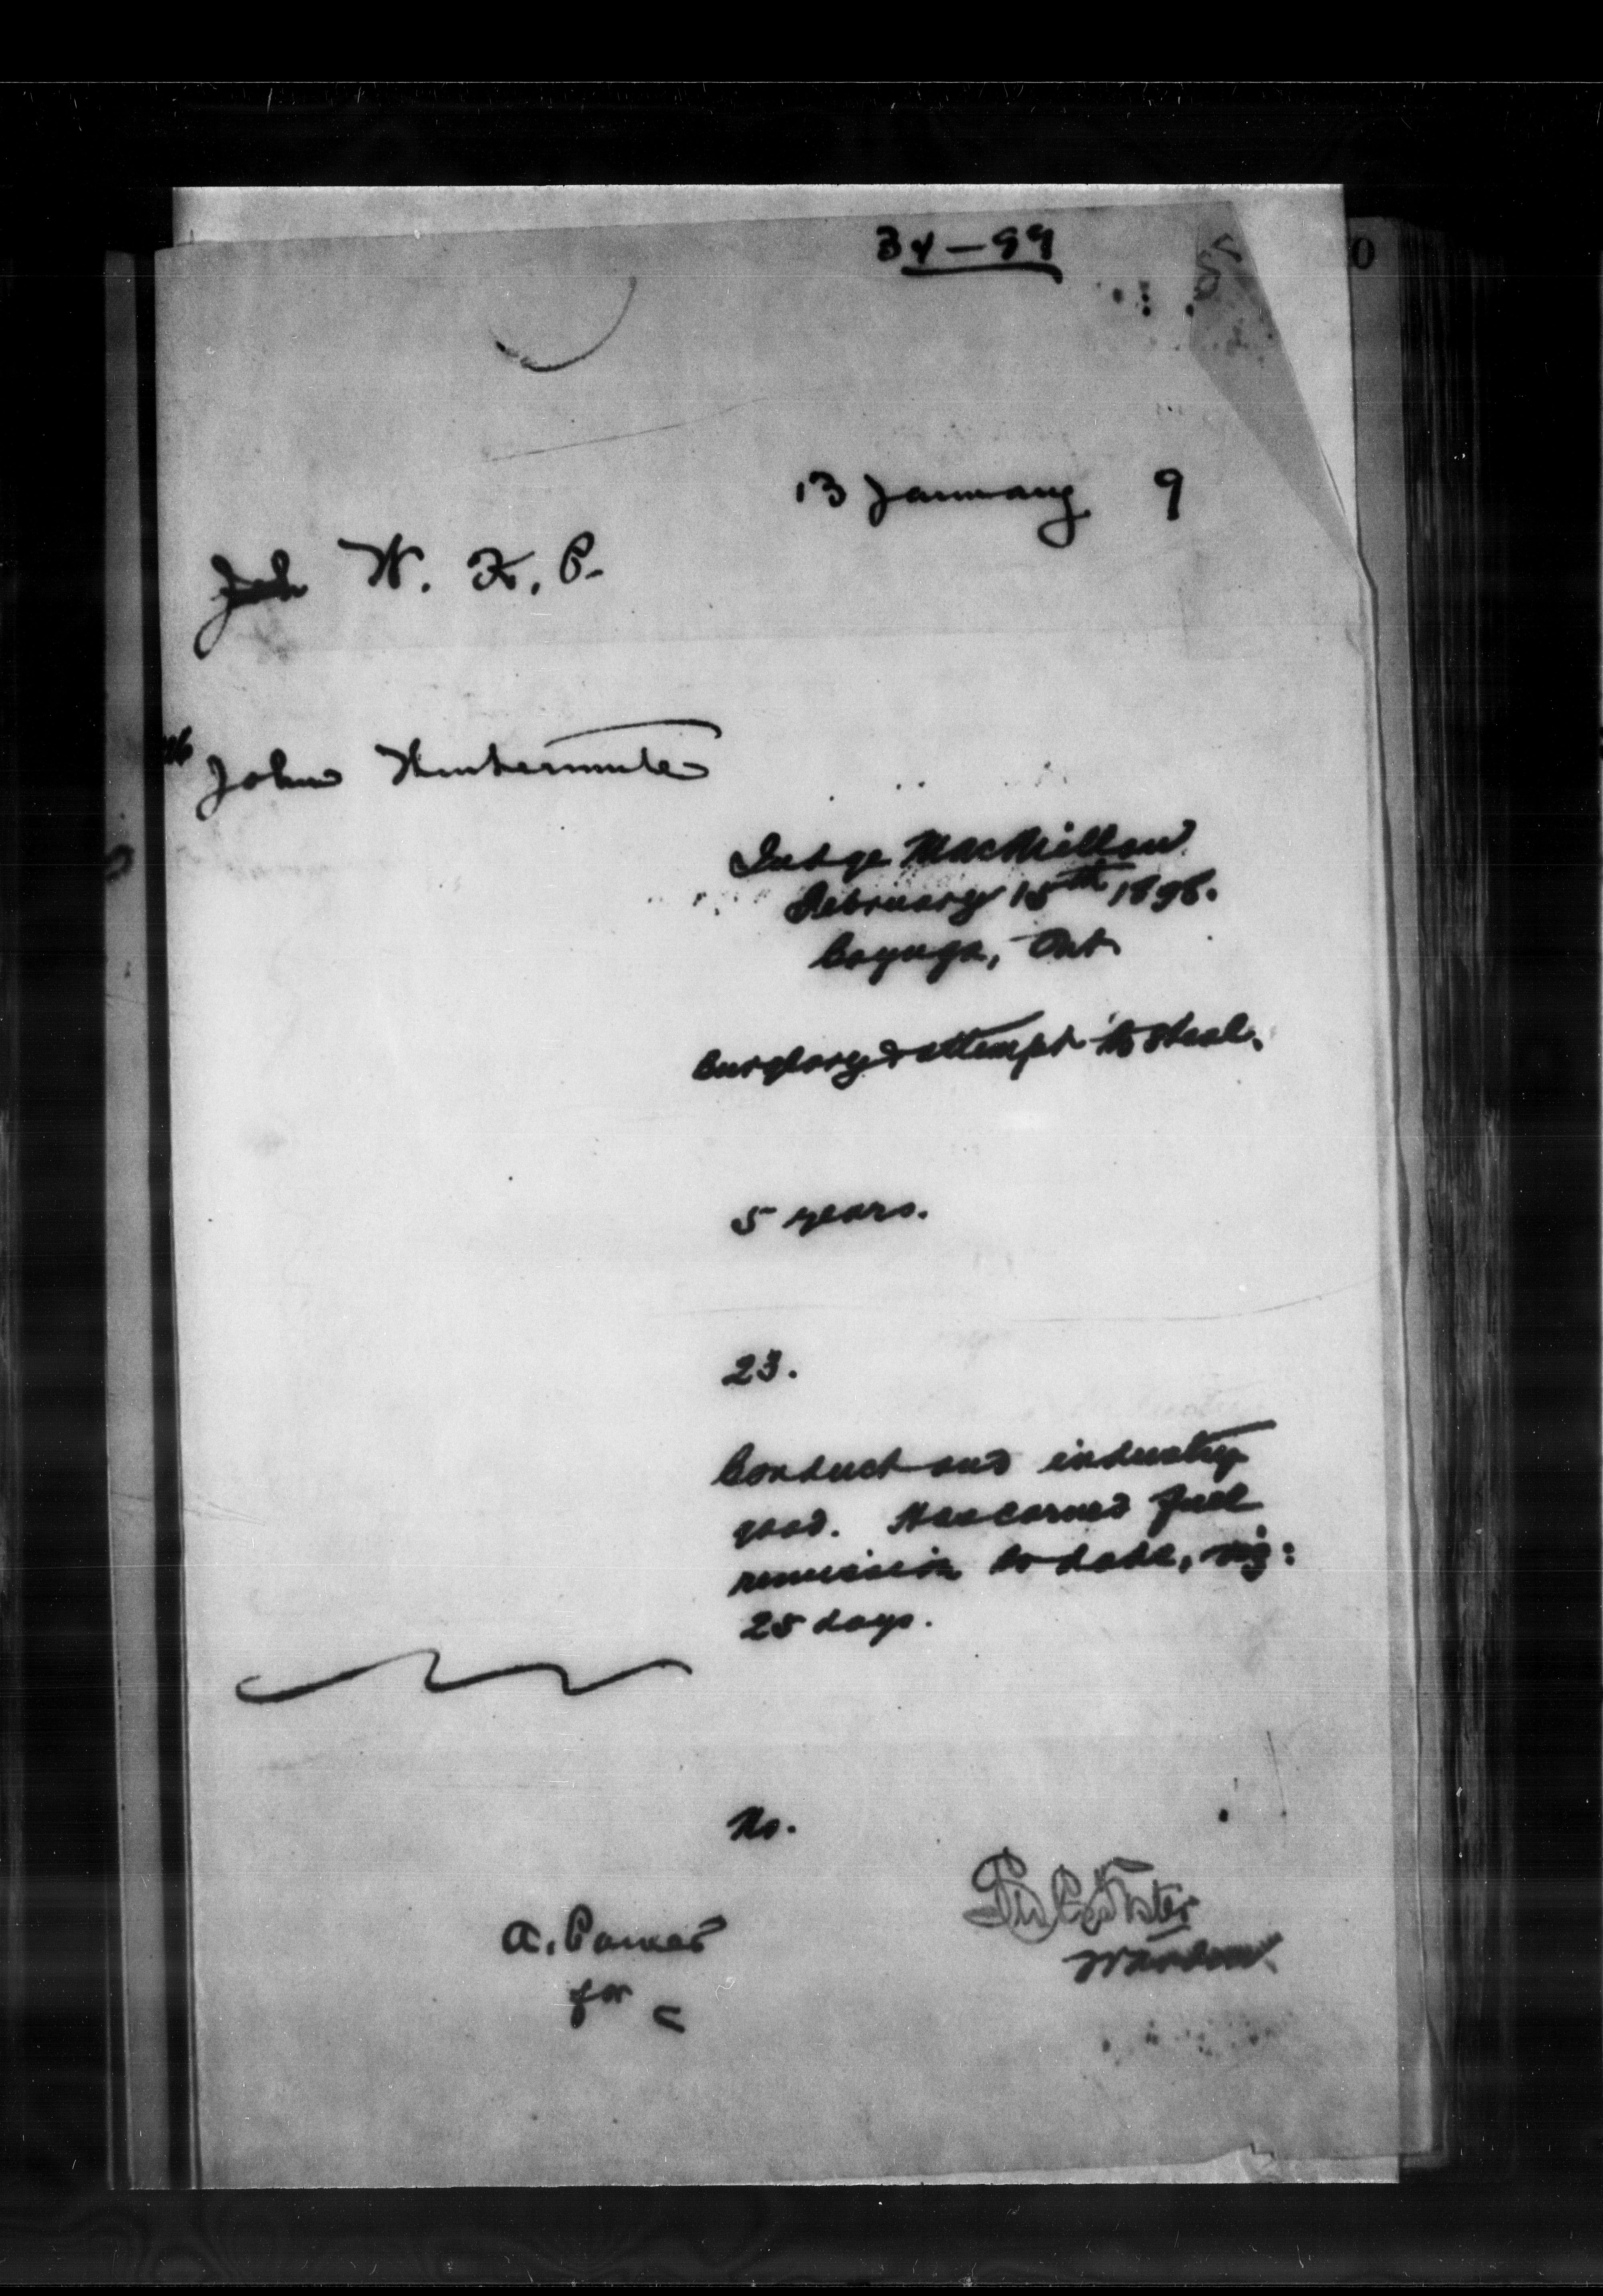 34-99
13 January 9
W. K. P.
John Wintermute
Judge MacMillan
February 15th 1898.
Cayuga, Ont.
Burglary & attempt to steal.
5 years.
23.
Conduct and industry
good. Has earned full
remission to date, viz:
25 days.
No.
A. Power
for
Foster
Warden